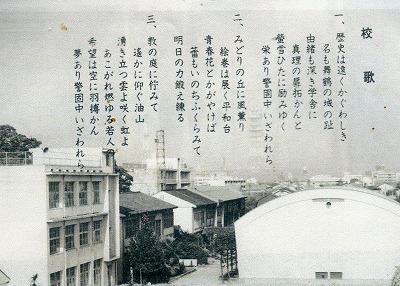 校歌
一、歴史は遠くかぐわしき
名も舞鶴の城の趾
由緒も深き学舎に
真理の星拓かんと
螢雪ひたに励みゆく
栄あり警固中いざわれら
二、みどりの丘に風薫り
絵巻は展く平和台
青春花とかがやけば
蕾もいのちふくらみて
明日の力鍛え練る
三、教の庭に佇みて
遥かに仰ぐ油山
湧き立つ雲よ咲く虹よ
あこがれ燃ゆる若人の
希望は空に羽搏かん
夢あり警固中いざわれら